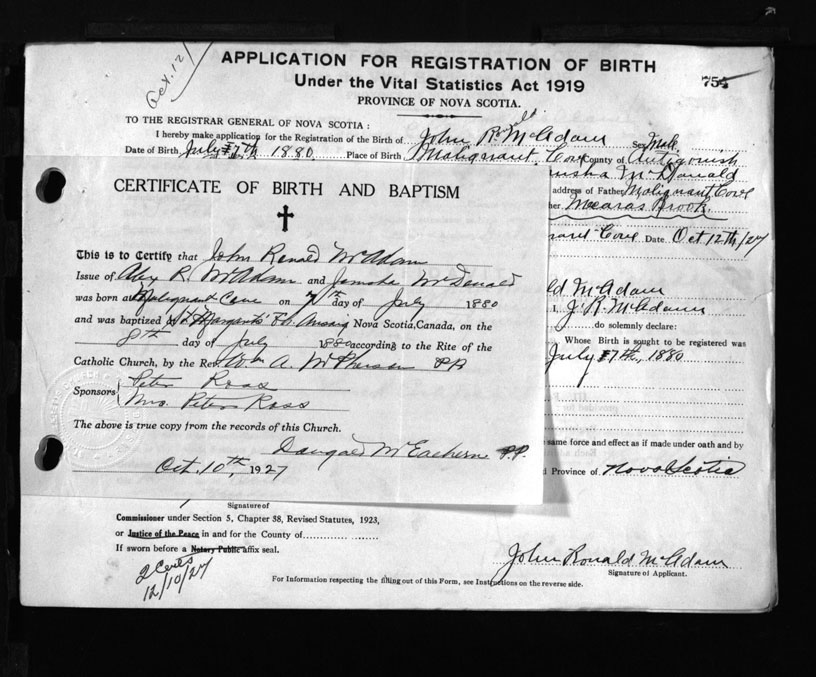 Oct. 12
APPLICATION FOR REGISTRATION OF BIRTH
Under the Vital Statistics Act 1919
PROVINCE OF NOVA SCOTIA.
754
TO THE REGISTRAR GENERAL OF NOVA SCOTIA :
I hereby make application for the Registration of the Birth of John Ronald McAdam Sex Male
Date of Birth July 7th 1880 Place of Birth Malignant Cove County of Antigonish
McDonald
address of Father Malignant Cove
her Mcaras Brook.
nant Cove Date Oct 12th/27
ld McAdam
I, J. R. McAdam
do solemnly declare:
Whose Birth is sought to be registered was
July 7th, 1880
same force and effect as if made under oath and by
d Province of Nova Scotia
CERTIFICATE OF BIRTH AND BAPTISM
This is to Certify that John Ronald McAdam
Issue of Alex R. McAdam and McDonald
was born at Malignant Cove on 7th day of July 1880
and was baptized at St Margaret's Ch. Arisaig Nova Scotia, Canada, on the
8th day of July 1880 according to the Rite of the
Catholic Church, by the Rev. Wm A. McPherson PP
Sponsors Peter Ross
Mrs. Peter Ross
The above is true copy from the records of this Church.
Dougald McEachern P.P.
Oct. 10th, 1927
Signature of
Commissioner under Section 5, Chapter 38, Revised Statutes, 1923,
or Justice of the Peace in and for the County of
If sworn before a Notary Public affix seal.
2 Certs
12/10/27
John Ronald McAdam
Signature of Applicant.
For Information respecting the filling out of this Form, see Instructions on the reverse side.